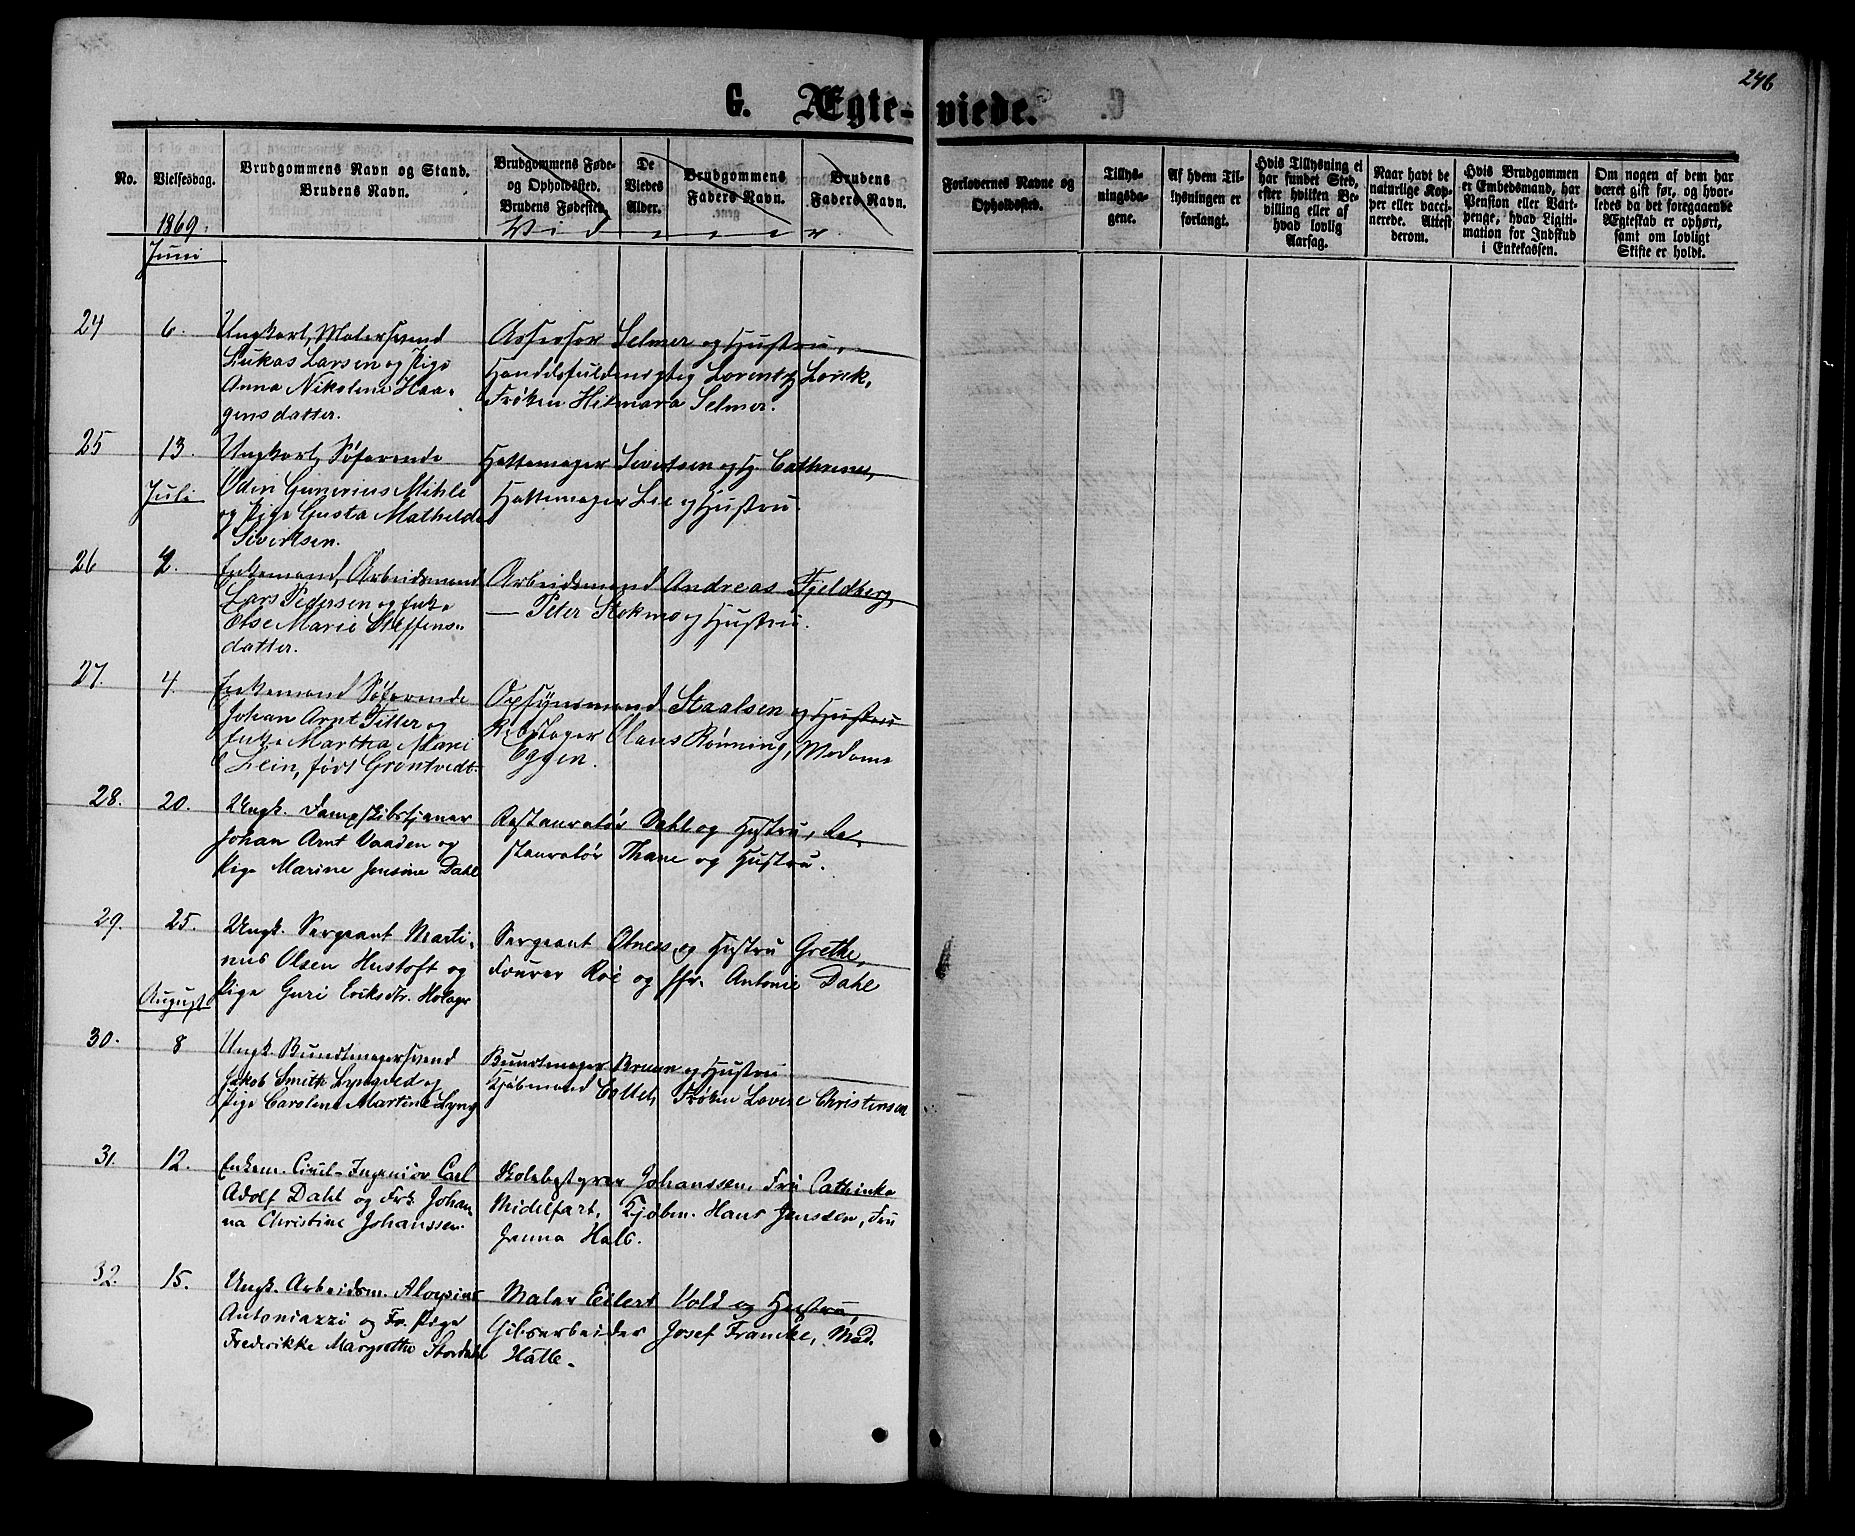 246
G. Ægte-viede.
No.
Vielsesdag.
Brudgommens Navn og Stand.
Brudens Navn.
Brudgommens Føde-
og Opholdssted.
Brudens Fødested.
De
Viedes
Alder.
Brudgommens
Faders Navn.
Brudens
Faders Navn.
Forlovernes Navne og
Opholdssted.
Tillys-
ningsda-
gene.
Af hvem Til-
lysningen er
forlangt.
Hvis Tillysning ei
har fundet Sted,
efter hvilken Be-
villing eller af
hvad lovlig
Aarsag.
Naar havt de
naturlige Kop-
per eller vacci-
nerede. Attest
derom.
Hvis Brudgommen
er Embedsmand, har
Pension eller Vart-
penge, hvad Ligiti-
mation for Indskud
i Enkekassen.
Om nogen af dem har
været gift før, og hvor-
ledes da det foregaaende
Ægteskab er ophørt,
samt om lovligt
Skifte er holdt.
1869.
Vidner.
Juni
24 6. Ungkarl, Malersvend
Lukas Larsen og Pige
Anna Nikoline Haa-
gensdatter.
Assessor Selmer og Hustru,
Handelsfuldmægtig Lorentz Lorck,
Frøken Hilmara Selmer.
25 13. Ungkarl, Søfarende
Odin Gunerius Mihle
og Pige Gusta Mathilde
Sivertsen.
Hattemager Sivertsen og H. Cathrine,
Hattemager Lie og Hustru.
Juli
26 2. Enkemand, Arbeidsmand
Lars Pedersen og Enke
Else Marie Steffens-
datter.
Arbeidsmand Andreas Fjeldberg
— Peter Stokmo og Hustru.
27. 4. Enkemand Søfarende
Johan Arnt Filler og
Enke Martha Marie
Klein, født Grøntvedt.
Opsynsmand Staalsen og Hustru
Rebslager Olaus Rønning, Madame
Eggen.
28. 20. Ungk. Dampskibstjener
Johan Arnt Vaaden og
Pige Marine Jensine Dahl
Restauratør Dahl og Hustru, Re-
stauratør Thane og Hustru.
29. 25. Ungk. Sergeant Marti-
nus Olsen Hustoft og
Pige Guri Eriksdtr. Holager
Sergeant Obness og Hustru Grethe,
Fourer Roe og Jfr. Antonie Dahl
August
30. 8 Ungk. Bundtmagersvend
Jakob Smith Lyngved og
Pige Caroline Martine Lyng
Bundtmager Bruun og Hustru
Kjøbmand Frøken Lovise Christensen
31. 12. Enkem. Civil-Ingeniør Carl
Adolf Dahl og Frk. Johan-
na Christine Johanssen.
Skolebestyrer Johanssen, Fru Cathinka
Midelfart, Kjøbm. Hans Jenssen, Fru
Jenna
32. 15. Ungk. Arbeidsm. Aloysius
Antoniazzi og Fr. Pige
Frederikke Margrethe Stordahl
Maler Eilert Vold og Hustru,
Gibsarbeider Josef Francke, Mad.
Hatle.